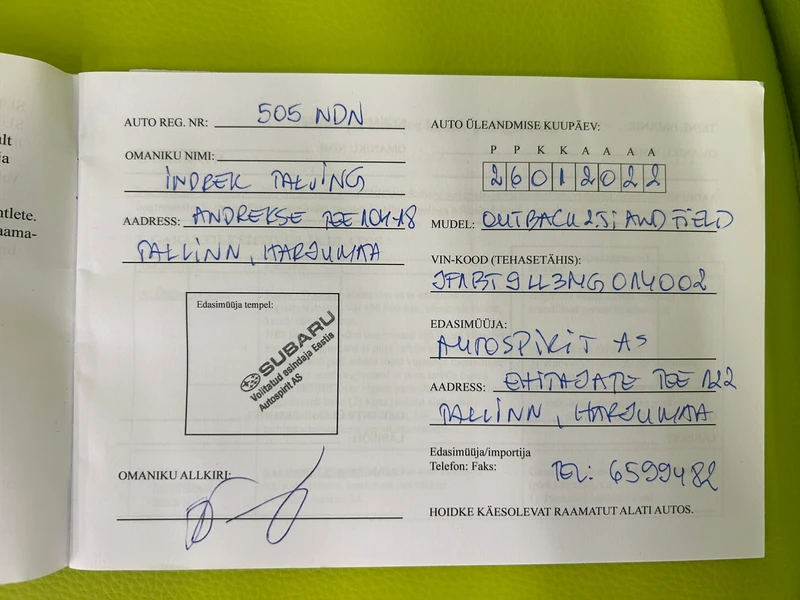 ult
ja
ntlete.
aama-
AUTO REG. NR: 505 NDN
OMANIKU NIMI:
INDREK TALVING
AADRESS: ANDREKSE TEE 104-18
TALLINN, HARJUMAA
Edasimüüja tempel:
SUBARU
Volitatud esindaja Eestis
Autospirit AS
OMANIKU ALLKIRI:
AUTO ÜLEANDMISE KUUPÄEV:
P P K K A A A A
2 6 0 1 2 0 2 2
MUDEL: OUTBACK 2.5i AWD FIELD
VIN-KOOD (TEHASETÄHIS):
JF1BT9LL3MG014002
EDASIMÜÜJA:
AUTOSPIRIT AS
AADRESS: EHITAJATE TEE 122
TALLINN, HARJUMAA
Edasimüüja/importija
Telefon: Faks: TEL: 6599482
HOIDKE KÄESOLEVAT RAAMATUT ALATI AUTOS.